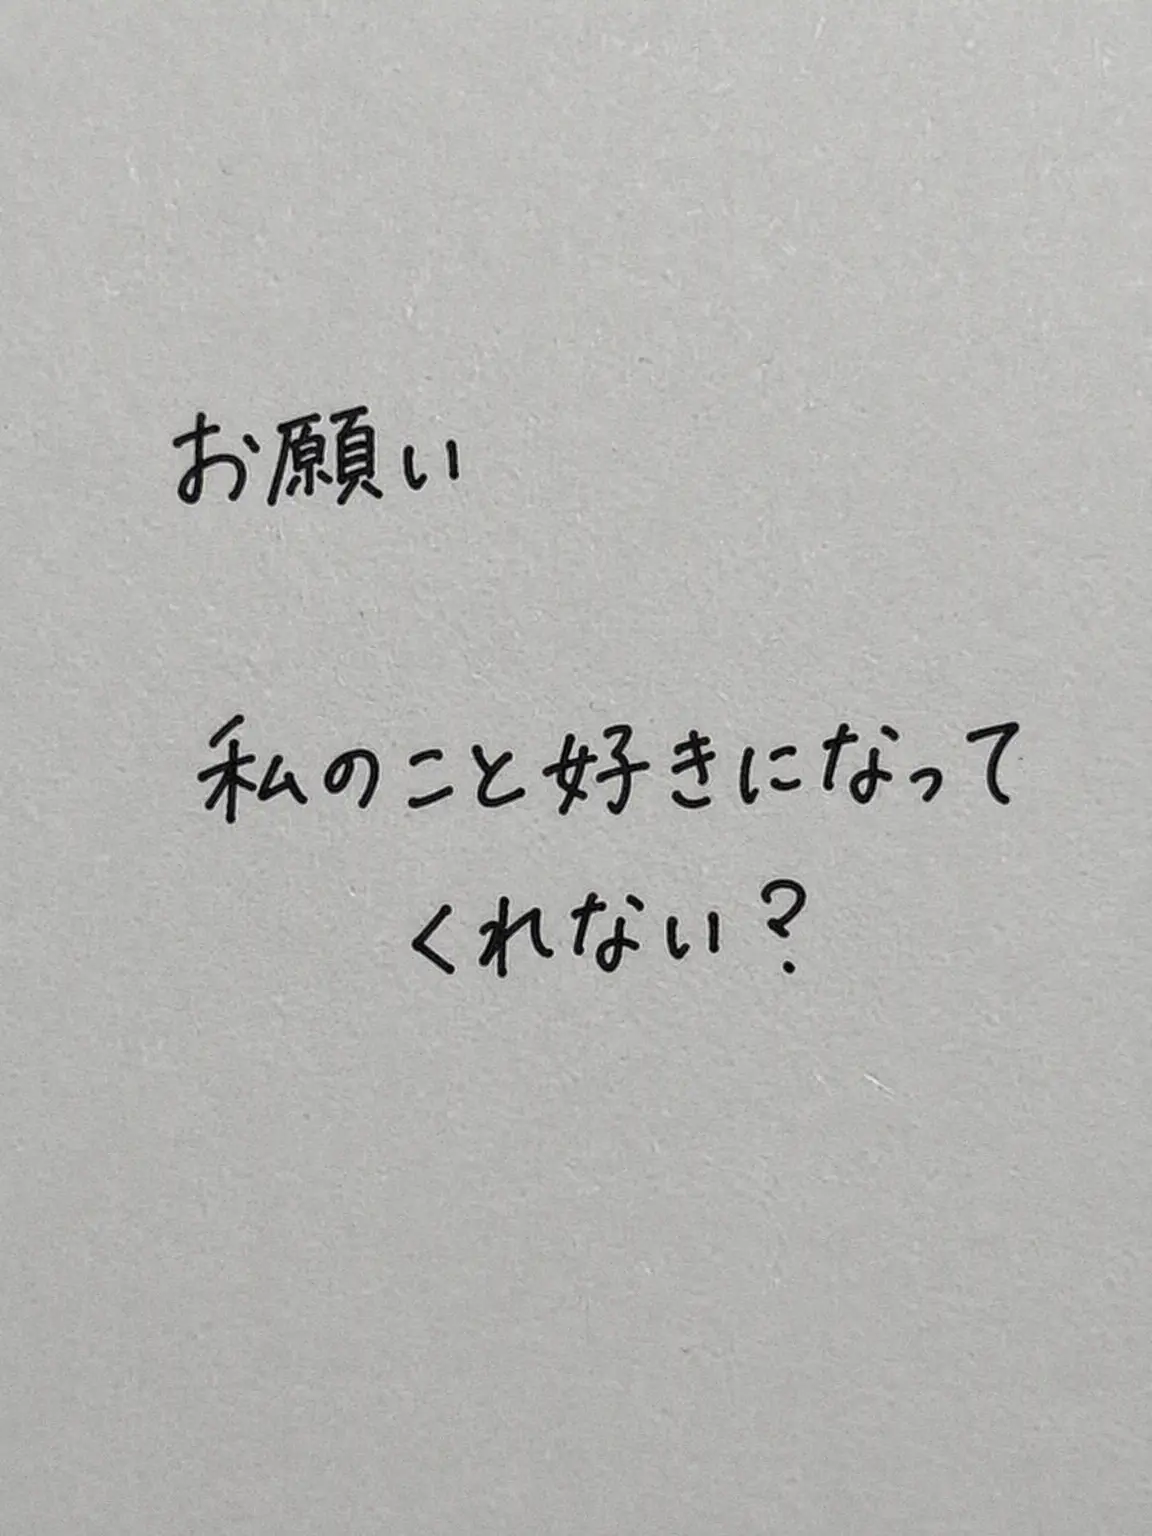 お願い
私のこと好きになって
くれない?